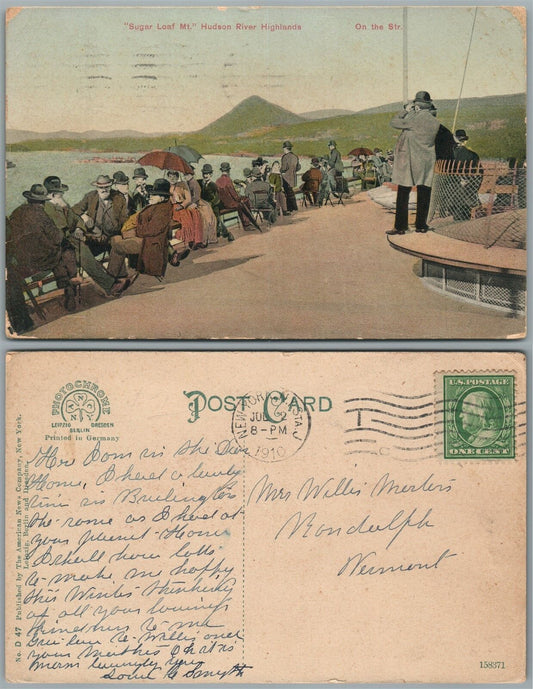 "Sugar Loaf Mt." Hudson River Highlands On the Str.
PHOTOCHROME
N Y N Y
LEIPZIG DRESDEN
BERLIN
Printed in Germany
POST CARD
NEW YORK, N.Y. STA. J
JUL 2
8-PM
1910
U.S. POSTAGE
ONE CENT
No. D 47 Published by The American News Company, New York.
Leipzig, Berlin and Dresden.
Here I am in the
Home, I had a lovely
time in Burlington
the same as I had at
your planet Home
I shall have lots
to make me happy
this Winter thinking
of all your loving
kindness to me
Give love to Willis and
your Mother
warm
Smyth
Mrs Willis
Randolph
Vermont
158371